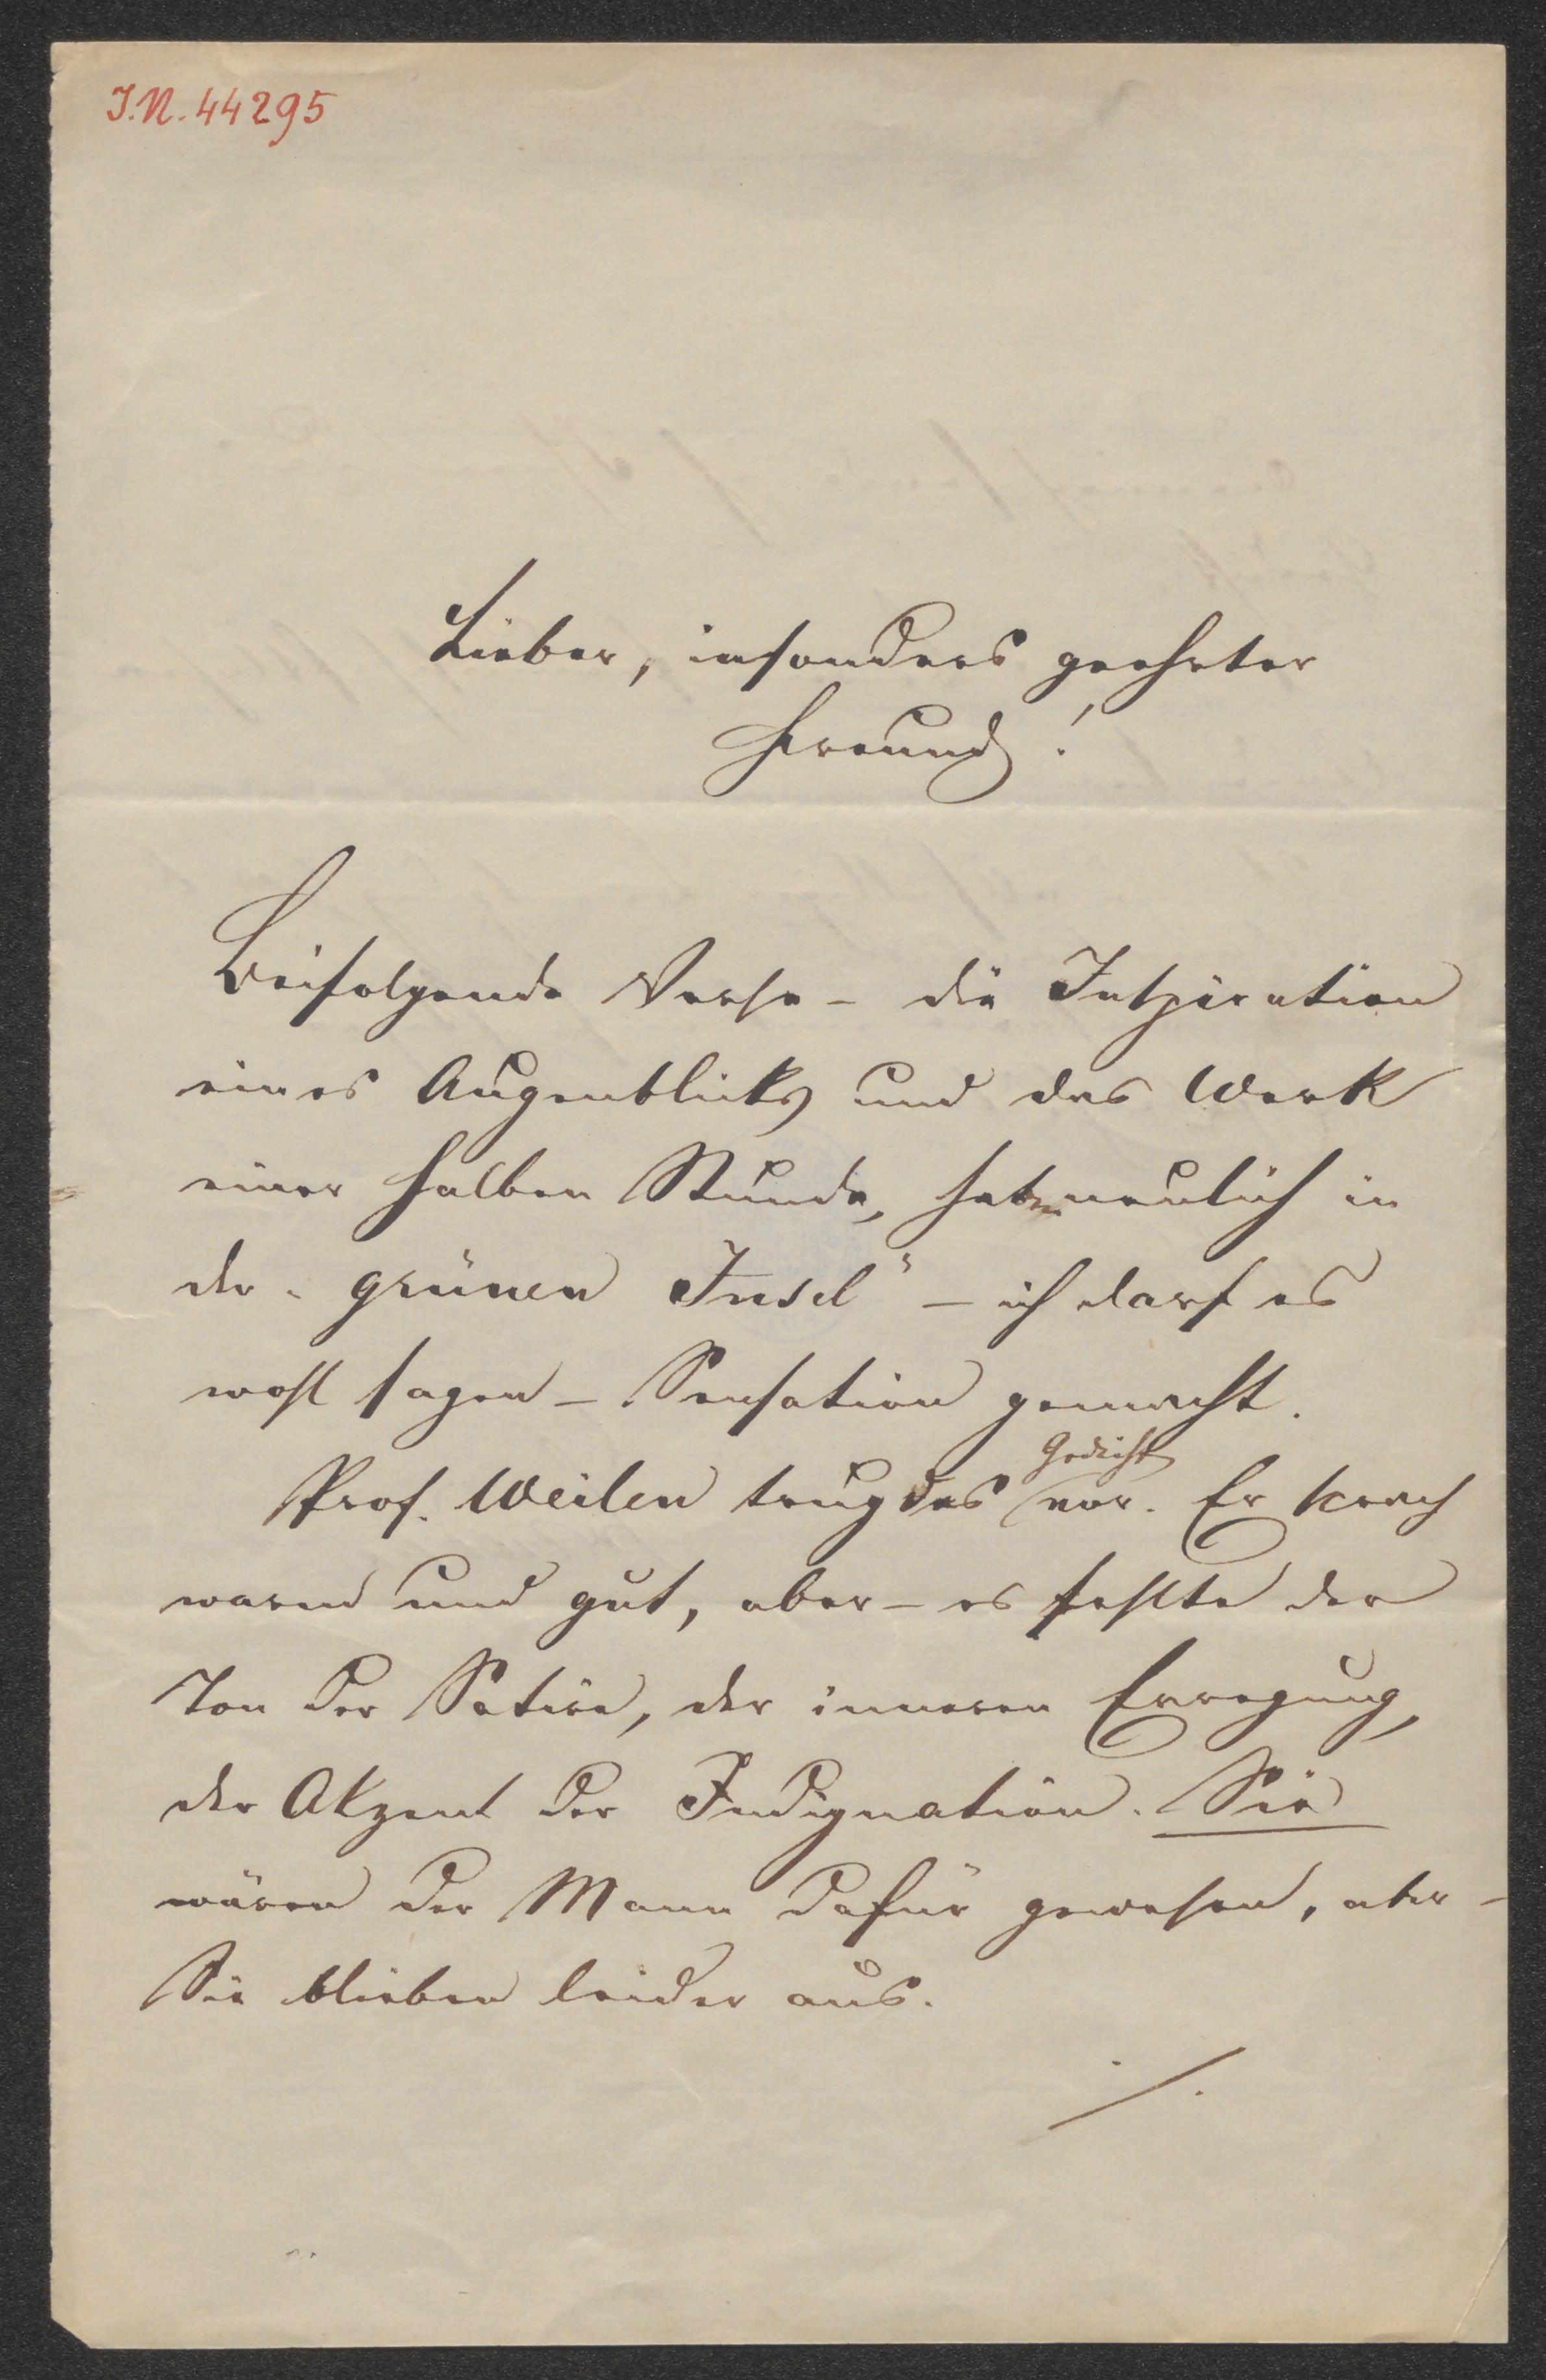 I.N. 44295
Lieber, insonders geehrter
Freund!
Beifolgende Verse – die Inspiration
eines Augenblicks und das Werk
einer halben Stunde, haben neulich in
der „grünen Insel" – ich darf es
wohl sagen – Sensation gemacht.
Gedicht
Prof. Weilen trug das vor. Er sprach
warm und gut, aber – es fehlte der
Ton der Satire, der inneren Erregung,
der Akzent der Indignation. Sie
wären der Mann dafür gewesen, aber –
Sie blieben leider aus.
./.